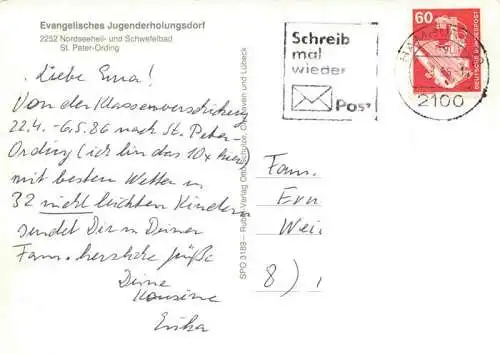 Evangelisches Jugenderholungsdorf
2252 Nordseeheil- und Schwefelbad
St. Peter-Ording
Liebe Erna!
Von der Klassenverschickung
22.4. - 6.5.86 nach St. Peter-
Ording (ich bin das 10x hier)
mit besten Wetter u
32 nicht leichten Kindern
sendet Dir u Deiner
Fam. herzliche Grüße
Deine
Kousine
Erika
SPO 3189 – Verlag Cuxhaven und Lübeck
Schreib
mal
wieder
Post
60
DEUTSCHE BUNDESPOST
2100
Fam.
Ern
Wei
8)